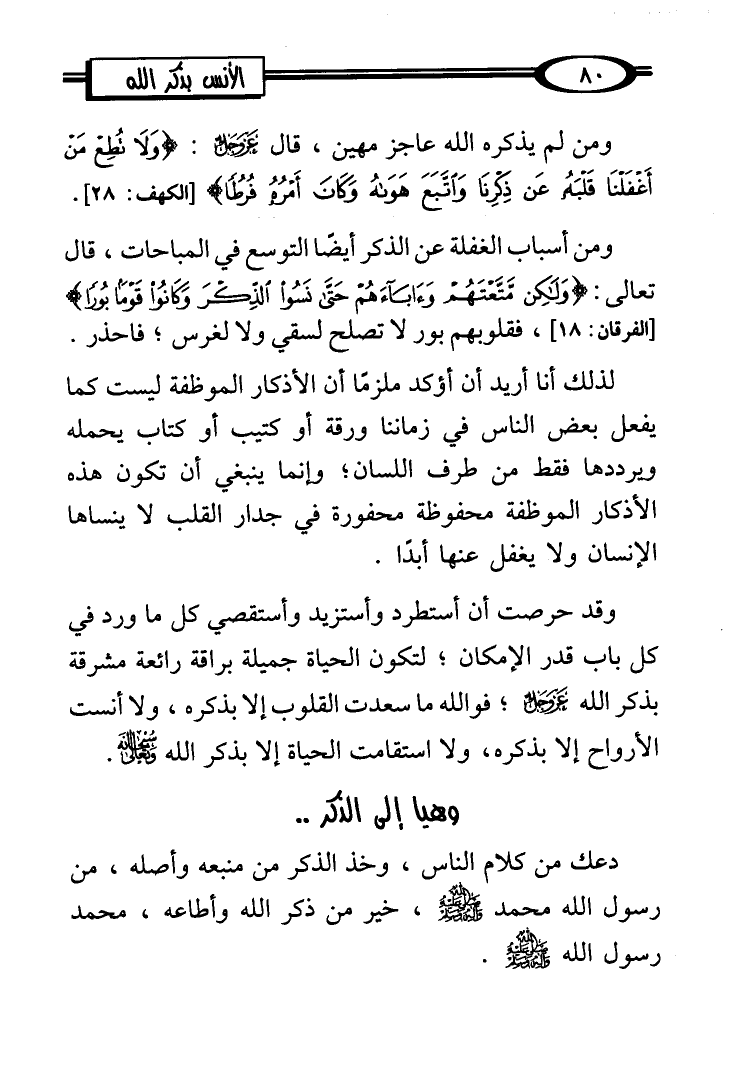 ٨٠
الأنس بذكر الله
ومن لم يذكره الله عاجز مهين ، قال عَزَّوَجَلَّ : ﴿وَلَا نُطِعْ مَنْ
أَغْفَلْنَا قَلْبَهُۥ عَن ذِكْرِنَا وَٱتَّبَعَ هَوَىٰهُ وَكَانَ أَمْرُهُۥ فُرُطًا﴾ [الكهف: ٢٨] .
ومن أسباب الغفلة عن الذكر أيضًا التوسع في المباحات ، قال
تعالى : ﴿وَلَٰكِن مَّتَّعْتَهُمْ وَءَابَآءَهُمْ حَتَّىٰ نَسُوا۟ ٱلذِّكْرَ وَكَانُوا۟ قَوْمًۢا بُورًا﴾
[الفرقان: ١٨] ، فقلوبهم بور لا تصلح لسقي ولا لغرس ؛ فاحذر .
لذلك أنا أريد أن أؤكد ملزمًا أن الأذكار الموظفة ليست كما
يفعل بعض الناس في زماننا ورقة أو كتيب أو كتاب يحمله
ويرددها فقط من طرف اللسان؛ وإنما ينبغي أن تكون هذه
الأذكار الموظفة محفوظة محفورة في جدار القلب لا ينساها
الإنسان ولا يغفل عنها أبدًا .
وقد حرصت أن أستطرد وأستزيد وأستقصي كل ما ورد في
كل باب قدر الإمكان ؛ لتكون الحياة جميلة براقة رائعة مشرقة
بذكر الله عَزَّوَجَلَّ ؛ فوالله ما سعدت القلوب إلا بذكره ، ولا أنست
الأرواح إلا بذكره، ولا استقامت الحياة إلا بذكر الله سُبْحَانَهُ وَتَعَالَى .
وهيا إلى الذكر ..
دعك من كلام الناس ، وخذ الذكر من منبعه وأصله ، من
رسول الله محمد ﷺ ، خير من ذكر الله وأطاعه ، محمد
رسول الله ﷺ .